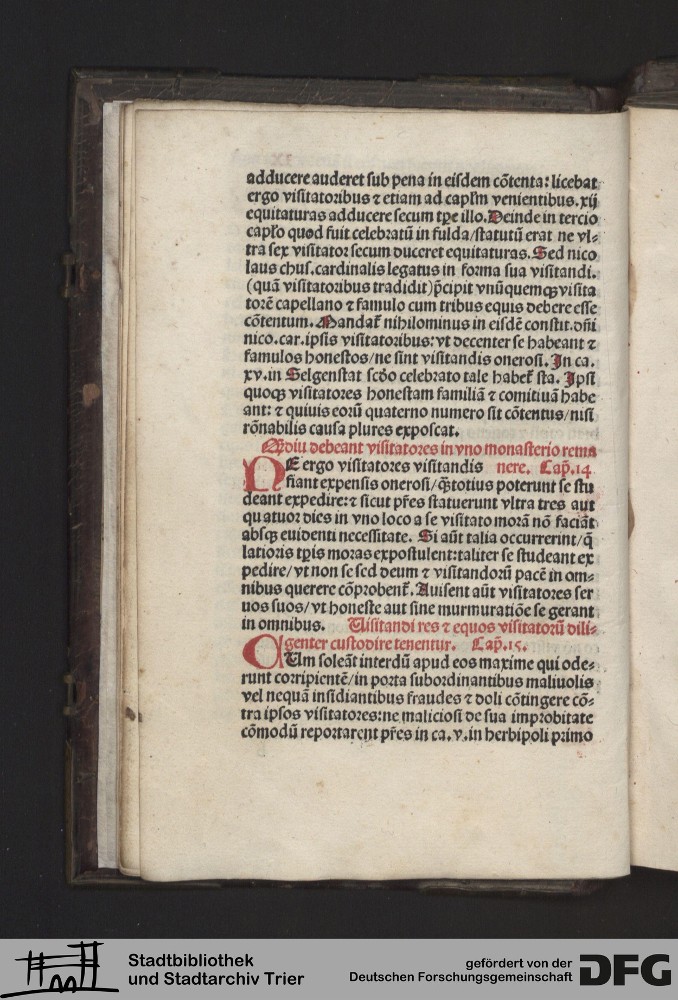 adducere auderet sub pena in eisdem cõtenta: licebat
ergo visitatoribus ⁊ etiam ad capl̃m venientibus. xij
equitaturas adducere secum tp̃e illo. Deinde in tercio
capl̃o quod fuit celebratũ in fulda/statutũ erat ne vl⸗
tra sex visitator secum duceret equitaturas. Sed nico
laus chus. cardinalis legatus in forma sua visitandi.
(quã visitatoribus tradidit) p̃cipit vnũquemqꝫ visita
torẽ capellano ⁊ famulo cum tribus equis debere esse
cõtentum. Mandat᷑ nihilominus in eisdẽ constit. dñi
nico. car. ipsis visitatoribus: vt decenter se habeant ⁊
famulos honestos/ne sint visitandis onerosi. In ca.
xv. in Selgenstat scd̃o celebrato tale habet᷑ sta. Ipsi
quoqꝫ visitatores honestam familiã ⁊ comitiuã habe
ant: ⁊ quiuis eorũ quaterno numero sit cõtentus/nisi
rõnabilis causa plures exposcat.
Qm̃diu debeant visitatores in vno monasterio rema
NE ergo visitatores visitandis nere. Cap̃. 14
fiant expensis onerosi/q̃ꝫtotius poterunt se stu
deant expedire: ⁊ sicut pr̃es statuerunt vltra tres aut
quatuor dies in vno loco a se visitato morã nõ faciãt
absqꝫ euidenti necessitate. Si aũt talia occurrerint/q̃
latioris tp̃is moras expostulent: taliter se studeant ex
pedire/vt non se sed deum ⁊ visitandorũ pacẽ in om⸗
nibus querere cõprobent᷑. Auisent aũt visitatores ser
uos suos/vt honeste aut sine murmuratiõe se gerant
in omnibus. Uisitandi res ⁊ equos visitatorũ dili⸗
genter custodire tenentur. Cap̃. 15.
CUm soleãt interdũ apud eos maxime qui ode⸗
runt corripientẽ/in porta subordinantibus maliuolis
vel nequã insidiantibus fraudes ⁊ doli cõtingere cõ⸗
tra ipsos visitatores: ne maliciosi de sua improbitate
cõmodũ reportarent pr̃es in ca. v. in herbipoli primo
Stadtbibliothek
und Stadtarchiv Trier
gefördert von der
Deutschen Forschungsgemeinschaft
DFG